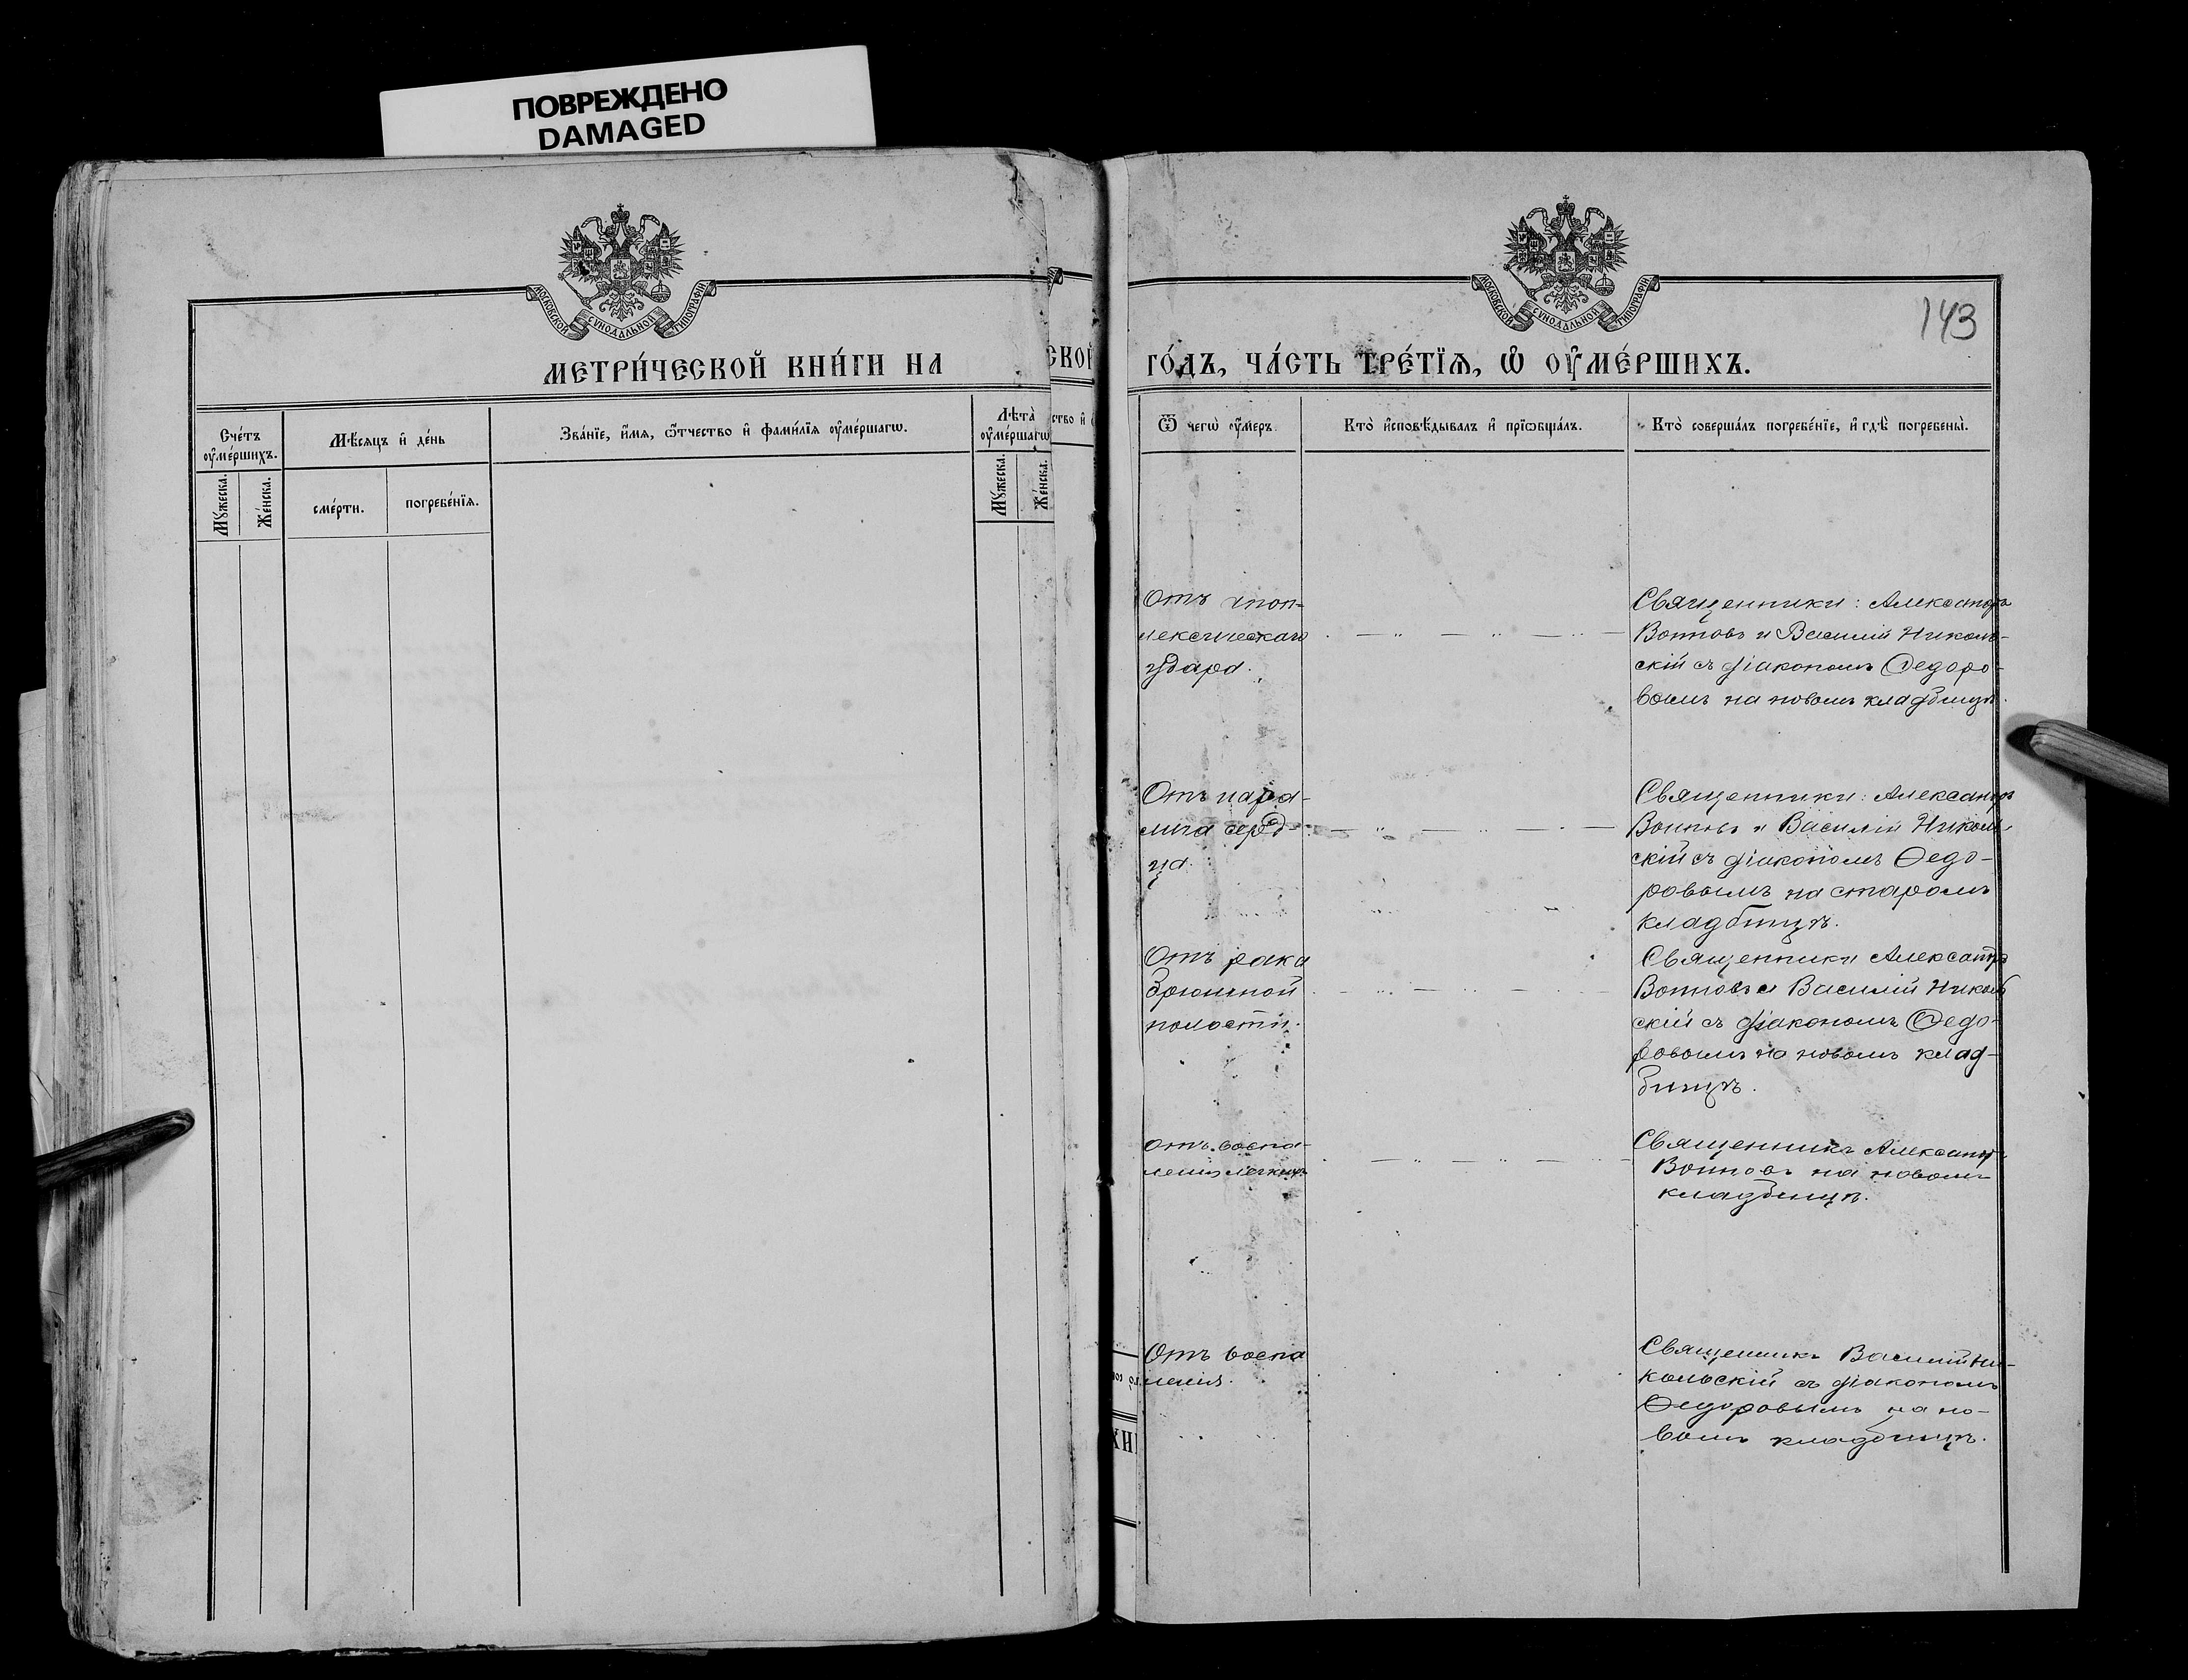 ПОВРЕЖДЕНО
DAMAGED
МОСКОВСКОЙ СѴНОДАЛЬНОЙ ТИПОГРАФІИ
МЕТРИ́ЧЕСКОЙ КНИ́ГИ НА
Сче́тъ оу҆ме́ршихъ.
Мѣ́сяцъ и҆ де́нь
Зва́нїе, и҆́мѧ, ѻ҆́тчество и҆ фами́лїѧ оу҆ме́ршагѡ.
Лѣта̀ оу҆ме́ршагѡ
Мꙋ́жеска.
Же́нска.
сме́рти.
погребе́нїѧ.
Мꙋ́жеска.
Же́нска.
МОСКОВСКОЙ СѴНОДАЛЬНОЙ ТИПОГРАФІИ
143
ГО́ДЪ, ЧА́СТЬ ТРЕ́ТЇѦ, Ѡ҆ ОУ҆МЕ́РШИХЪ.
Ѿ чегѡ̀ оу҆́меръ.
Кто̀ и҆сповѣ́дывалъ и҆ прїѡбща́лъ.
Кто̀ соверша́лъ погребе́нїе, и҆ гдѣ̀ погребены̀.
Отъ апоп-
лексическаго
удара.
Священники: Александръ
Воиновъ и Василій Николь-
скій съ діакономъ Ѳедоро-
вымъ на новомъ кладбищѣ.
Отъ пара-
лича серд-
ца.
Священники: Александръ
Воиновъ и Василій Николь-
скій съ діакономъ Ѳедо-
ровымъ на старомъ
кладбищѣ.
Отъ рака
брюшной
полости.
Священники Александръ
Воиновъ и Василій Николь
скій съ діакономъ Ѳедо-
ровымъ на новомъ клад-
бищѣ.
Отъ воспа-
ленія легкихъ
Священникъ Александръ
Воиновъ на новомъ
кладбищѣ.
Отъ воспа
ленія.
Священникъ Василій Ни-
кольскій съ діакономъ
Ѳедоровымъ на но-
вомъ кладбищѣ.